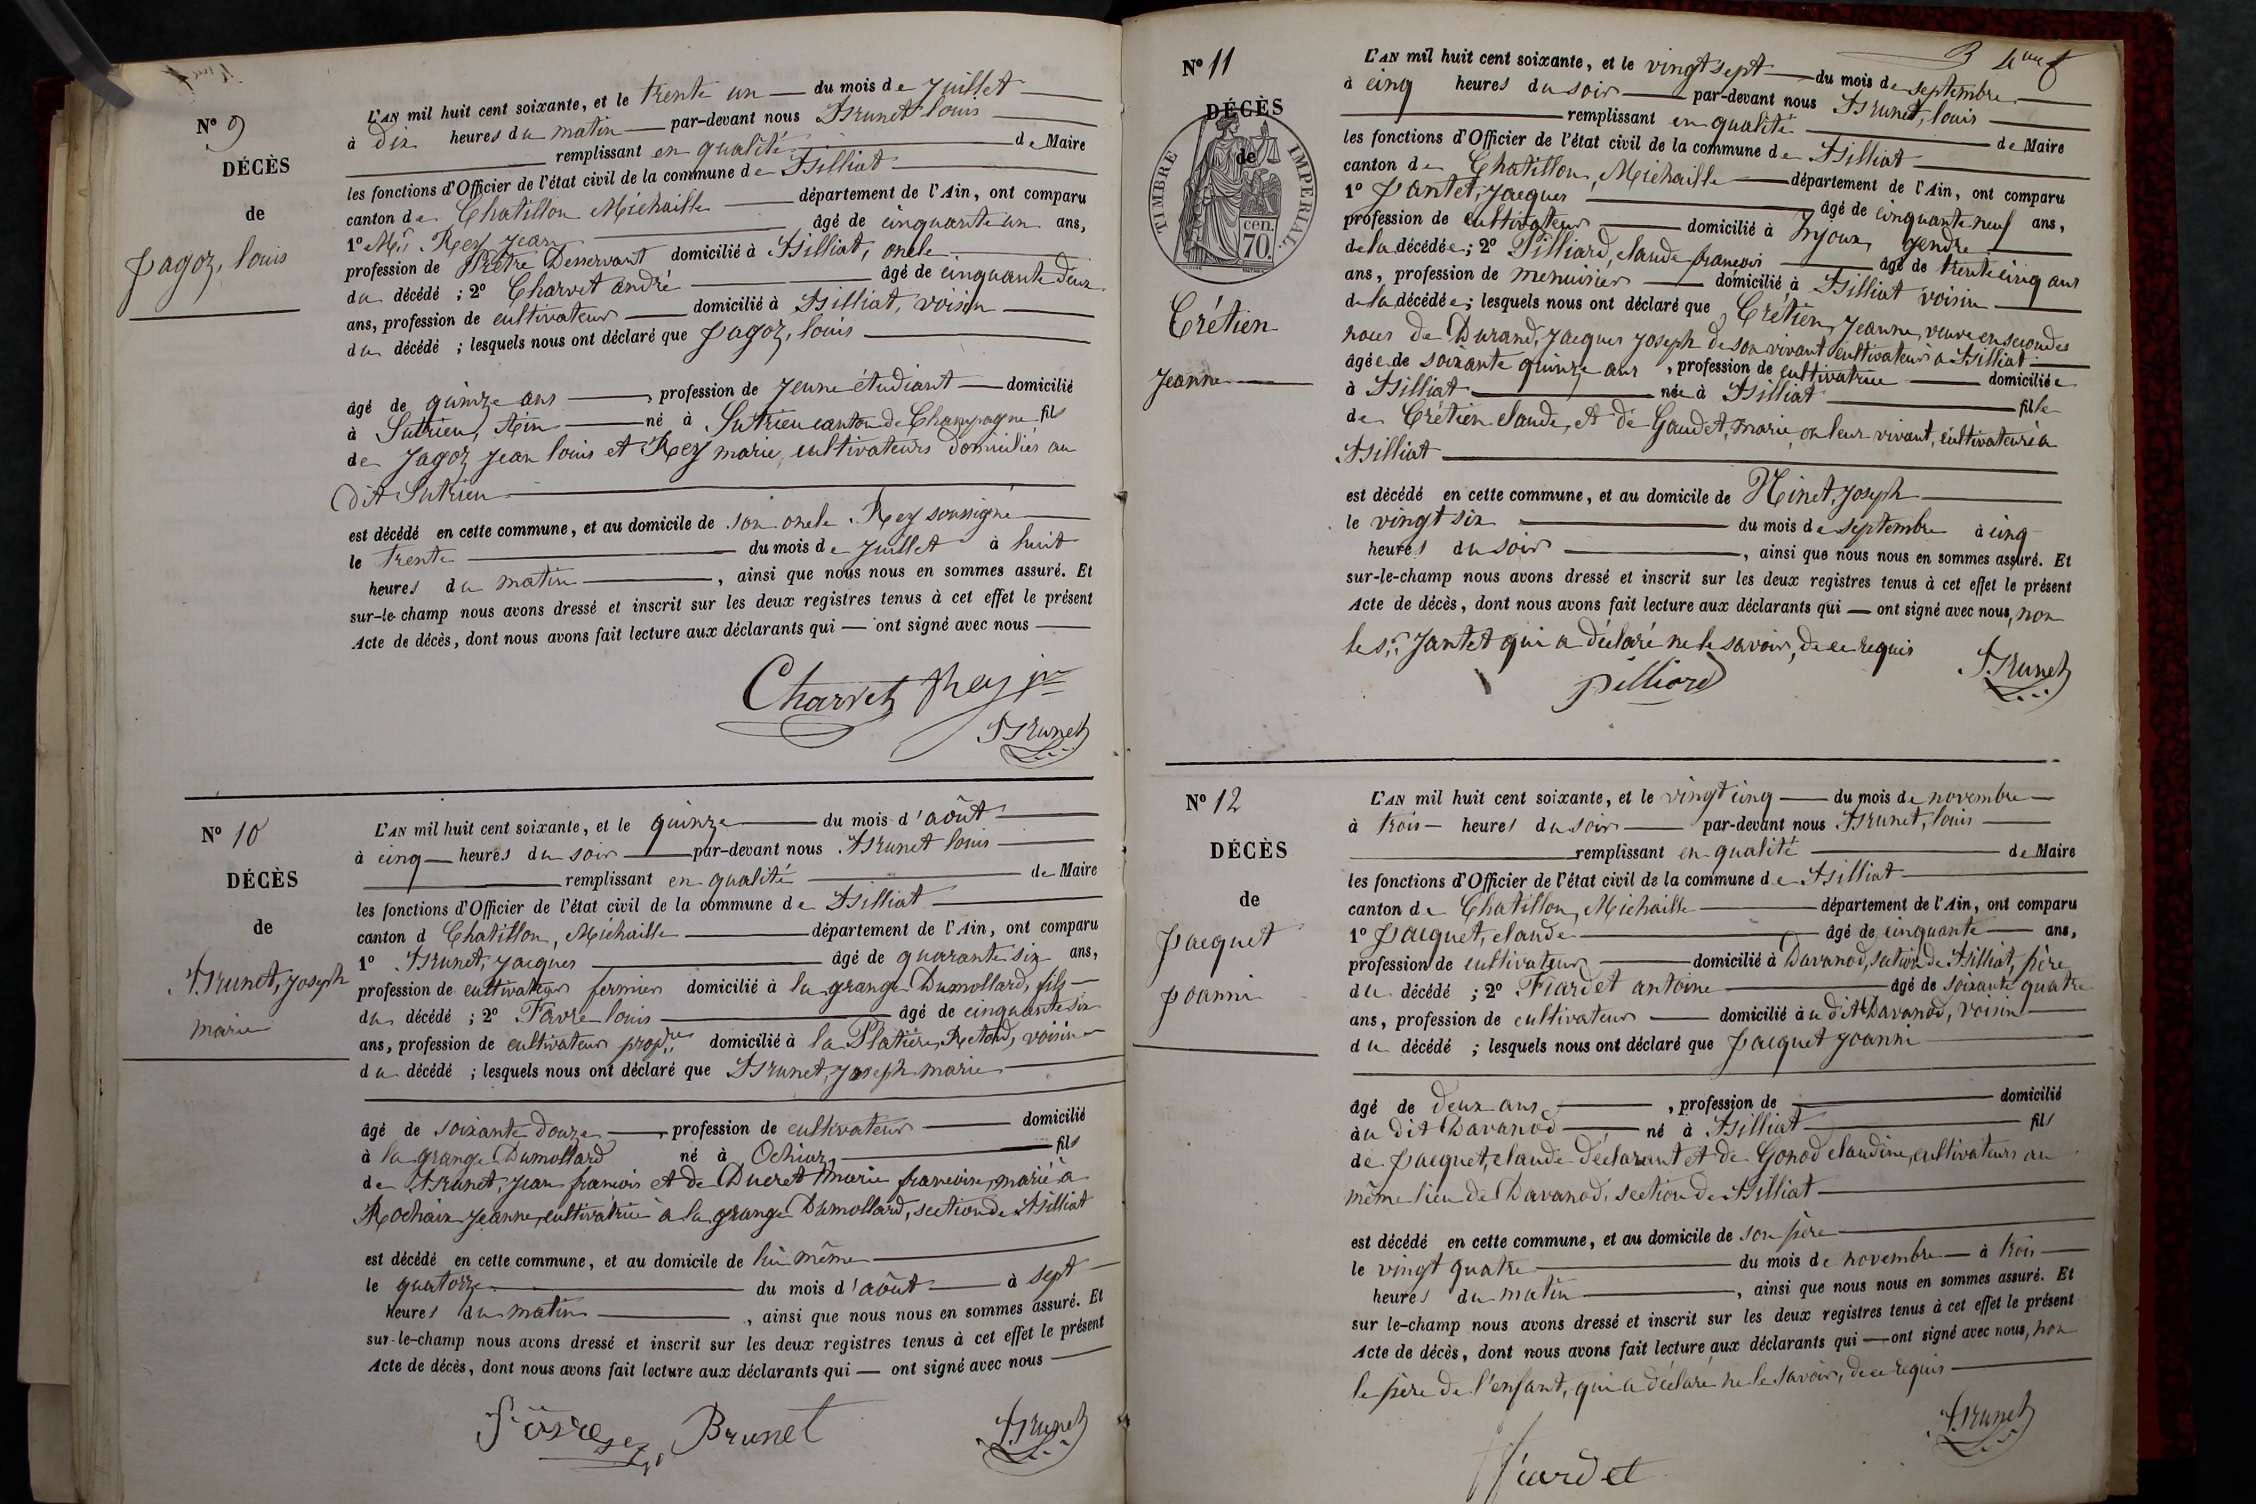 Nº 9
DÉCÈS
de
Jagoz, louis
L'AN mil huit cent soixante, et le trente un du mois de Juillet
à dix heures du matin par-devant nous Brunet louis
remplissant en qualité de Maire
les fonctions d'Officier de l'état civil de la commune de Billiat
canton de Chatillon Michaille département de l'Ain, ont comparu
1º Mr. Rey Jean âgé de cinquante un ans,
profession de Prêtre Desservant domicilié à Billiat, oncle
du décédé ; 2º Charvet andré âgé de cinquante deux
ans, profession de cultivateur domicilié à Billiat, voisin
du décédé ; lesquels nous ont déclaré que Jagoz, louis
âgé de quinze ans , profession de jeune étudiant domicilié
à Sutrieu, Ain né à Sutrieu canton de Champagne fils
de Jagoz Jean louis et Rey marie, cultivateurs domiciliés au
dit Sutrieu
est décédé en cette commune, et au domicile de son oncle Rey soussigné
le trente du mois de Juillet à huit
heures du matin , ainsi que nous nous en sommes assuré. Et
sur-le-champ nous avons dressé et inscrit sur les deux registres tenus à cet effet le présent
Acte de décès, dont nous avons fait lecture aux déclarants qui — ont signé avec nous
Charvet Rey
Brunet
Nº 10
DÉCÈS
de
Brunet, Joseph
marie
L'AN mil huit cent soixante, et le quinze du mois d'août
à cinq heures du soir par-devant nous Brunet louis
remplissant en qualité de Maire
les fonctions d'Officier de l'état civil de la commune de Billiat
canton d Chatillon, Michaille département de l'Ain, ont comparu
1º Brunet, Jacques âgé de quarante six ans,
profession de cultivateur fermier domicilié à la grange Dumollard, fils
du décédé ; 2º Favre louis âgé de cinquante six
ans, profession de cultivateur proprre domicilié à la Platière, Retord, voisin
du décédé ; lesquels nous ont déclaré que Brunet, Joseph marie
âgé de soixante douze , profession de cultivateur domicilié
à la grange Dumollard né à Ochiaz fils
de Brunet, Jean françois et de Ducret Marie françoise, marié à
Rochaix Jeanne, cultivatrice à la grange Dumollard, section de Billiat
est décédé en cette commune, et au domicile de lui même
le quatorze du mois d'août à sept
heures du matin , ainsi que nous nous en sommes assuré. Et
sur-le-champ nous avons dressé et inscrit sur les deux registres tenus à cet effet le présent
Acte de décès, dont nous avons fait lecture aux déclarants qui — ont signé avec nous
Favre Brunet
Brunet
Nº 11
DÉCÈS
de
TIMBRE IMPÉRIAL
70 cen.
Crétien
Jeanne
L'AN mil huit cent soixante, et le vingt sept du mois de septembre
à cinq heures du soir par-devant nous Brunet, louis
remplissant en qualité de Maire
les fonctions d'Officier de l'état civil de la commune de Billiat
canton de Chatillon, Michaille département de l'Ain, ont comparu
1º Jantet, Jacques âgé de cinquante neuf ans,
profession de cultivateur domicilié à Injoux, gendre
de la décédée ; 2º Pilliard, claude françois âgé de trente cinq ans
ans, profession de menuisier domicilié à Billiat voisin
de la décédée ; lesquels nous ont déclaré que Crétien, Jeanne, veuve en secondes
noces de Durand, Jacques Joseph de son vivant cultivateur à Billiat
âgée de soixante quinze ans , profession de cultivatrice domiciliée
à Billiat née à Billiat fille
de Crétien Claude, et de Gaudet, marie, en leur vivant, cultivateurs à
Billiat
est décédé en cette commune, et au domicile de Ninet, Joseph
le vingt six du mois de septembre à cinq
heures du soir , ainsi que nous nous en sommes assuré. Et
sur-le-champ nous avons dressé et inscrit sur les deux registres tenus à cet effet le présent
Acte de décès, dont nous avons fait lecture aux déclarants qui — ont signé avec nous, non
le sr. Jantet qui a déclaré ne le savoir, de ce requis
pilliard Brunet
Nº 12
DÉCÈS
de
Jacquet
Joanni
L'AN mil huit cent soixante, et le vingt cinq du mois de novembre
à trois heures du soir par-devant nous Brunet, louis
remplissant en qualité de Maire
les fonctions d'Officier de l'état civil de la commune de Billiat
canton de Chatillon, Michaille département de l'Ain, ont comparu
1º Jacquet, claude âgé de cinquante ans,
profession de cultivateur domicilié à Davanod, section de Billiat, père
du décédé ; 2º Fiardet antoine âgé de soixante quatre
ans, profession de cultivateur domicilié au dit Davanod, voisin
du décédé ; lesquels nous ont déclaré que Jacquet Joanni
âgé de deux ans , profession de domicilié
au dit Davanod né à Billiat fils
de Jacquet, claude déclarant et de Gonod claudine, cultivateurs au
même lieu de Davanod, section de Billiat
est décédé en cette commune, et au domicile de son père
le vingt quatre du mois de novembre à trois
heures du matin , ainsi que nous nous en sommes assuré. Et
sur le-champ nous avons dressé et inscrit sur les deux registres tenus à cet effet le présent
Acte de décès, dont nous avons fait lecture aux déclarants qui — ont signé avec nous, non
le père de l'enfant, qui a déclaré ne le savoir, de ce requis
Brunet
fiardet